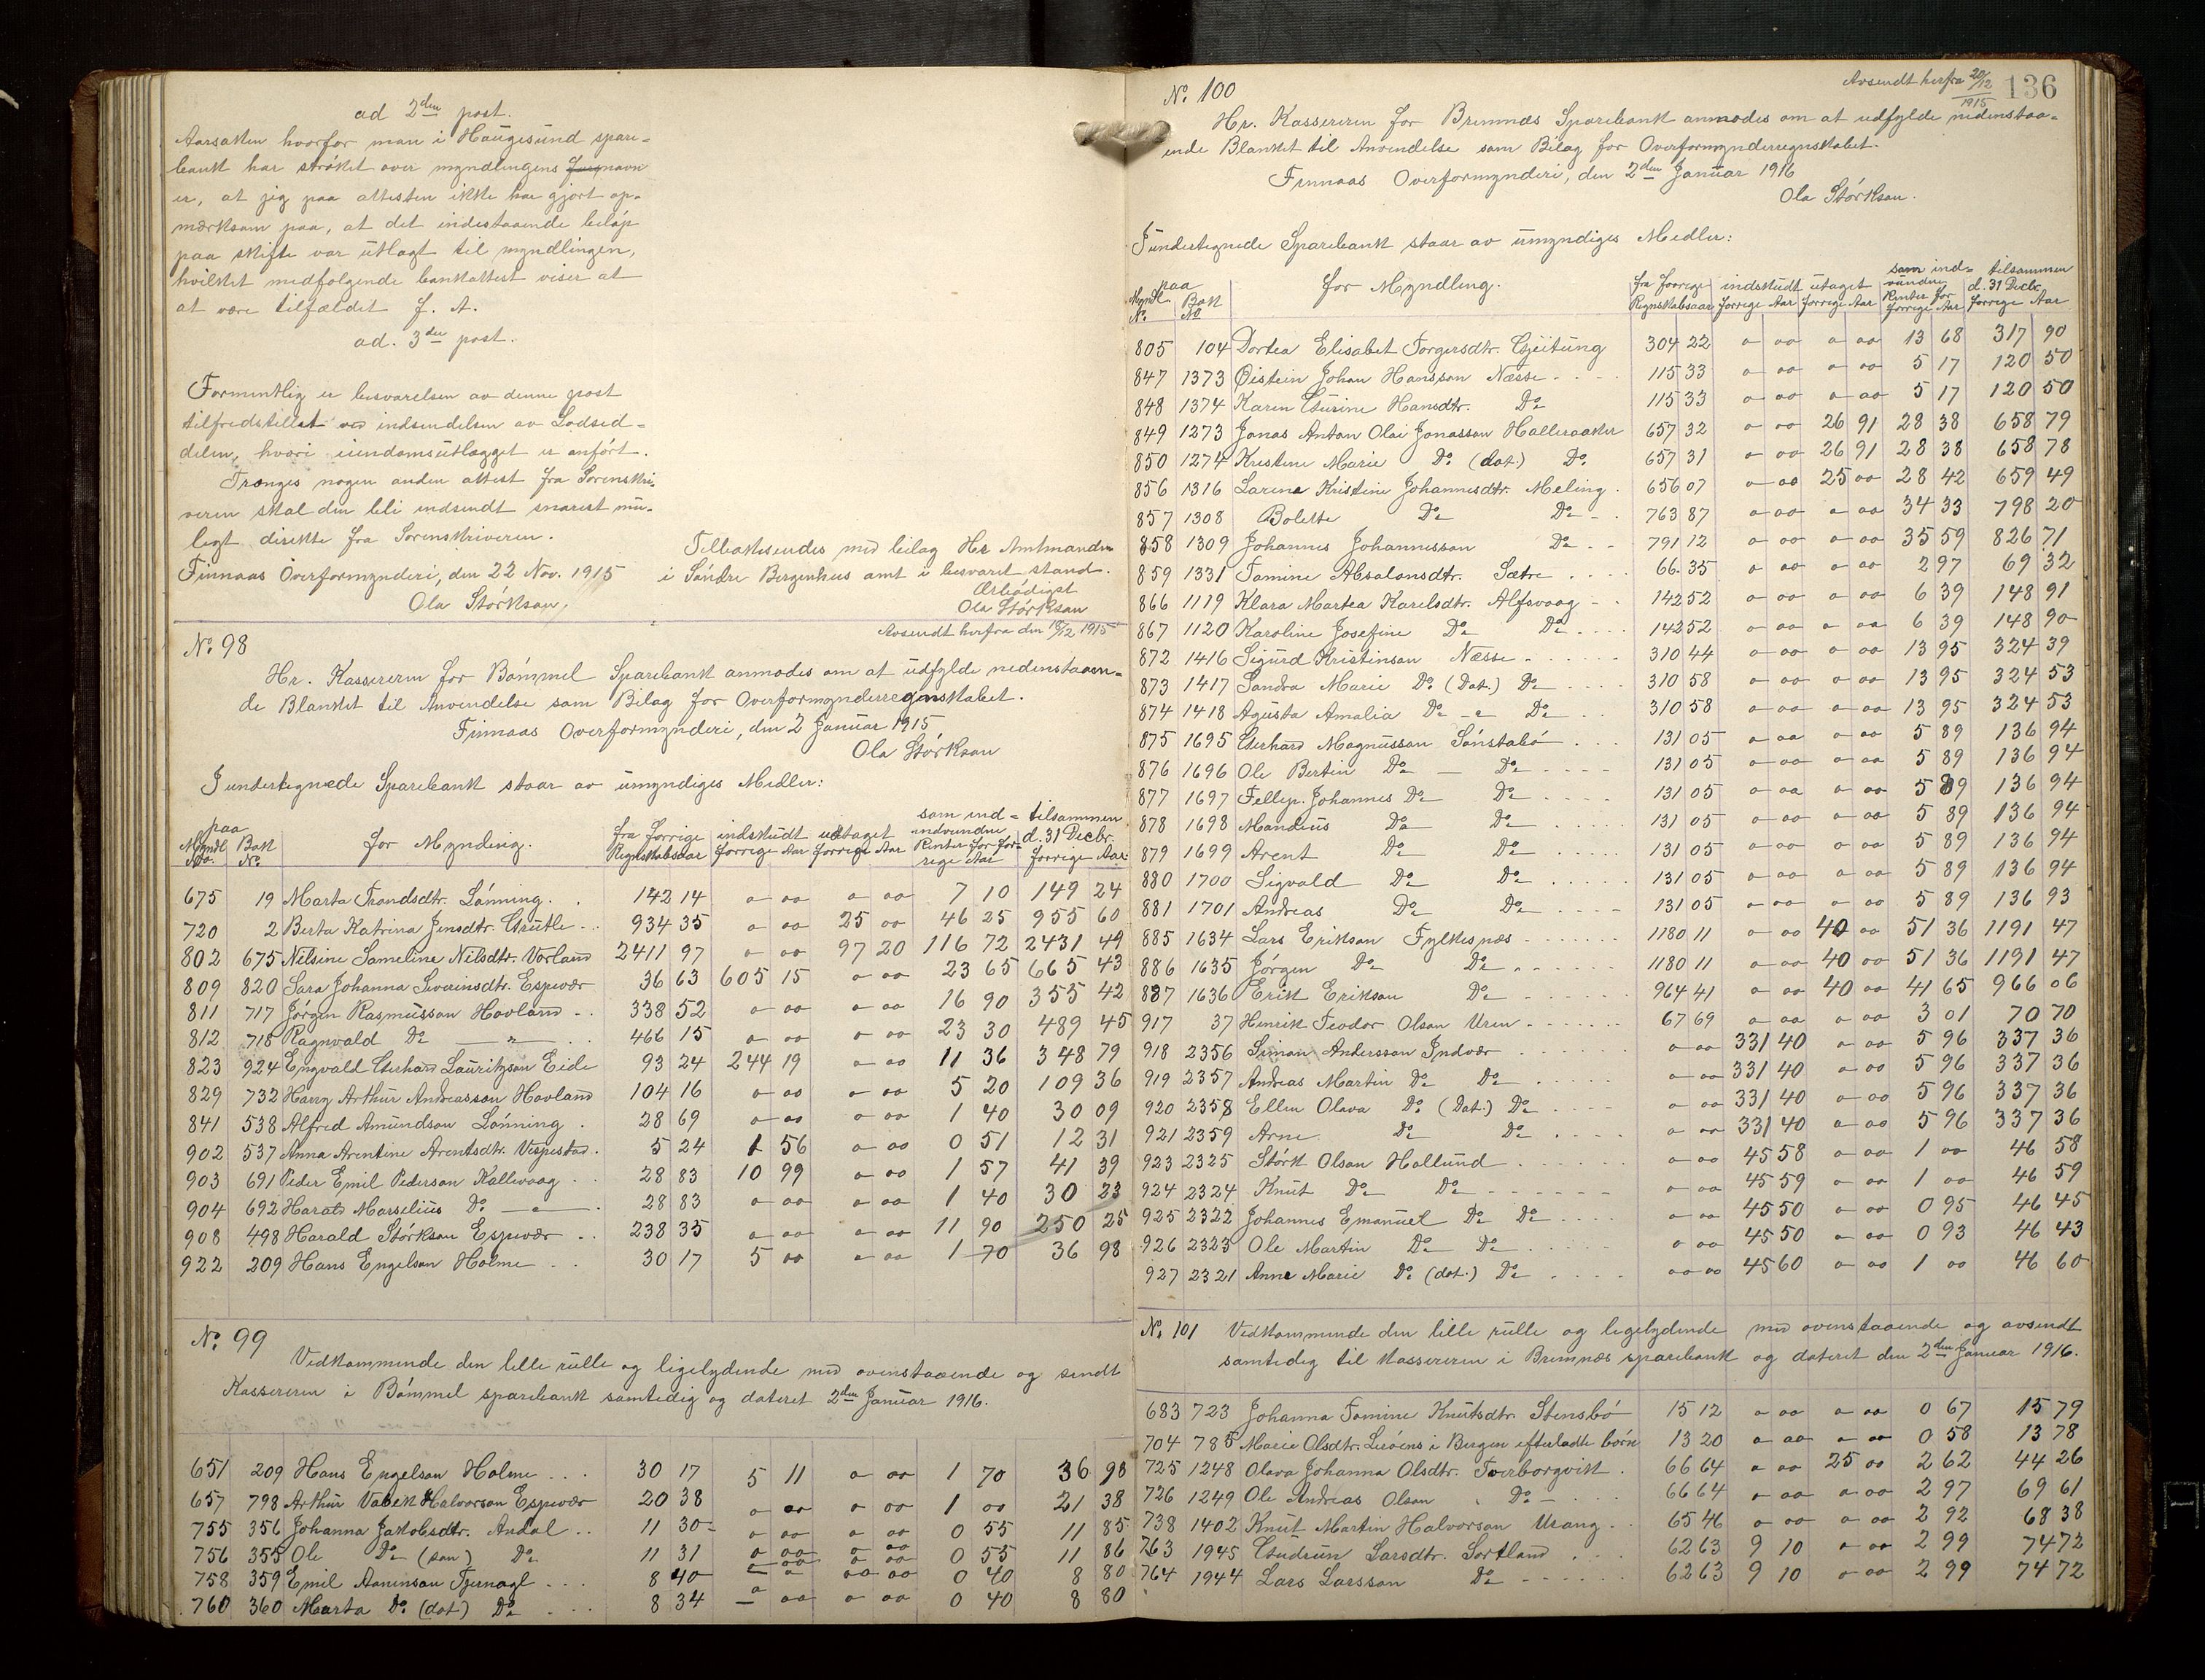 ad 2den post.
Aarsaken hvorfor man i Haugesund spare-
bank har strøket over myndlingens navn
er, at jeg paa attesten ikke har gjort op-
mærksom paa, at det indestaaende beløp
paa skifte var utlagt til myndlingen,
hvilket medfølgende bankattest viser at
at være tilfældet f. A.
ad. 3die post.
Formentlig er besvarelsen av denne post
tilfredstillet ved indsendelsen av Lodsed-
delen, hvori eiendomsutlægget er anført.
Trænges nogen anden attest fra Sorenskri-
veren skal den bli indsendt snarest mu-
ligt direkte fra Sorenskriveren.
Finnaas Overformynderi, den 22 Nov. 1915
Ola Størkson,
Tilbakesendes med bilag Hr Amtmanden
i Søndre Bergenhus amt i besvaret stand.
Ærbødigst
Ola Størkson
Avsendt herfra den 18/12 1915
No. 98
Hr. Kassereren for Bømmel Sparebank anmodes om at udfylde nedenstaaen-
de Blanket til Anvendelse som Bilag for Overformynderregnskabet.
Finnaas Overformynderi, den 2 Januar 1915
Ola Størkson
I undertegnede Sparebank staar av umyndiges Midler:
paa Myndl. No. Bok No. for Mynding. fra forrige Regnskabsaar indskudt forrige Aar udtaget forrige Aar som ind- indvundne Renter for for- rige Aar tilsammen d. 31 Decbr. forrige Aar
675 19 Marta Trondsdtr. Lønning. . 142 14 o oo o oo 7 10 149 24
720 2 Berta Katrina Jensdtr. Grutle . . 934 35 o oo 25 oo 46 25 955 60
802 675 Nilsine Sameline Nilsdtr. Vorland 2411 97 o oo 97 20 116 72 2431 49
809 820 Sara Johanna Sverinsdtr. Espevær 36 63 605 15 o oo 23 65 665 43
811 717 Jørgen Rasmusson Hovland - . 338 52 o oo o oo 16 90 355 42
812 718 Ragnvald Do — " — 466 15 o oo o oo 23 30 489 45
823 924 Engvald Gerhard Lauritzson Eide 93 24 244 19 o oo 11 36 348 79
829 732 Harry Arthur Andreasson Hovland 104 16 o oo o oo 5 20 109 36
841 538 Alfred Amundson Lønning . 28 69 o oo o oo 1 40 30 09
902 537 Anna Arentine Arentsdtr. Vespestad . 5 24 6 56 o oo 0 51 12 31
903 691 Peder Emil Pederson Kallevaag . . 28 83 10 99 o oo 1 57 41 39
904 692 Harald Marselius Do — " — . 28 83 o oo o oo 1 40 30 23
908 498 Harald Størkson Espevær . . 238 35 o oo o oo 11 90 250 25
922 209 Hans Engelson Holme . . 30 17 5 oo o oo 1 70 36 98
No. 99
Vedkommende den lille rulle og ligelydende med ovenstaaende og sendt
Kassereren i Bømmel sparebank samtidig og dateret 2den Januar 1916.
651 209 Hans Engelson Holme . . . 30 17 5 11 o oo 1 70 36 98
657 798 Arthur Valen Halvorson Espevær 20 38 o oo o oo 1 oo 21 38
755 356 Johanna Jakobsdtr. Andal . . 11 30 o oo o oo 0 55 11 85
756 355 Ole Do (søn) Do 11 31 o oo o oo 0 55 11 86
758 359 Emil Aaninson Tjernagl . . . 8 40 o oo oo 0 40 8 80
760 360 Marta Do (dat) Do . . . 8 34 — oo o oo 0 40 8 80
Avsendt herfra 20/12 1915
136
No. 100
Hr. Kassereren for Bremnæs Sparebank anmodes om at udfylde nedenstaa-
ende Blanket til Anvendelse som Bilag for Overformynderregnskabet.
Finnaas Overformynderi, den 2den Januar 1916
Ola Størkson.
I undertegnede Sparebank staar av umyndiges Midler:
paa Myndl. No. Bok No for Myndling. fra forrige Regnskabsaar indskudt forrige Aar utaget forrige Aar som ind- vundne Renter for forrige Aar tilsammen d. 31 Decbr forrige Aar
805 104 Dortea Elisabet Torgersdtr. Gjeitung 304 22 o oo o oo 13 68 317 90
847 1373 Øistein Johan Hansson Næsse . . . 115 33 o oo o oo 5 17 120 50
848 1374 Karen Gurine Hansdtr. Do 115 33 o oo o oo 5 17 120 50
849 1273 Jonas Anton Olai Jonasson Halleraaker 657 32 o oo 26 91 28 38 658 79
850 1274 Kristine Marie Do (dat.) Do. 657 31 o oo 26 91 28 38 658 78
856 1316 Larine Kristine Johannesdtr. Meling . 656 07 o oo 25 oo 28 42 659 49
857 1308 Bolette Do Do - . 763 87 o oo o oo 34 33 798 20
858 1309 Johannes Johannesson Do - - 791 12 o oo o oo 35 59 826 71
859 1331 Tomine Absalonsdtr. Sætre . . . . 66 35 o oo o oo 2 97 69 32
866 1119 Klara Martea Karelsdtr. Alfsvaag - . 142 52 o oo o oo 6 39 148 91
867 1120 Karoline Josefine Do Do . . . . 142 52 o oo o oo 6 39 148 90
872 1416 Sigurd Kristinson Næsse . . . . . . 310 44 o oo o oo 13 95 324 39
873 1417 Sandra Marie Do (Dat.) Do . . . . 310 58 o oo o oo 13 95 324 53
874 1418 Agusta Amalia Do - " Do . . 310 58 o oo o oo 13 95 324 53
875 1695 Gerhard Magnusson Sønstabø . . . 131 05 o oo o oo 5 89 136 94
876 1696 Ole Bertin Do — Do . . . . 131 05 o oo o oo 5 89 136 94
877 1697 Fellip. Johannes Do Do . . . . 131 05 o oo o oo 5 89 136 94
878 1698 Mandius Do Do . . . . 131 05 o oo o oo 5 89 136 94
879 1699 Arent Do Do . . . . . 131 05 o oo o oo 5 89 136 94
880 1700 Sigvald Do Do . . . . . 131 05 o oo o oo 5 89 136 94
881 1701 Andreas Do Do . . . . 131 05 o oo o oo 5 89 136 93
885 1634 Lars Erikson Fylkesnæs . . . . . . . 1180 11 o oo 40 oo 51 36 1191 47
886 1635 Jørgen Do Do . . . . . . 1180 11 o oo 40 oo 51 36 1191 47
887 1636 Erik Erikson Do . . . . . . 964 41 o oo 40 oo 41 65 966 06
917 37 Henrik Teodor Olson Uren . . . . . . 67 69 o oo o oo 3 01 70 70
918 2356 Simon Andersson Indvær . . . . . . o oo 331 40 o oo 5 96 337 36
919 2357 Andreas Martin Do Do . . . . . o oo 331 40 o oo 5 96 337 36
920 2358 Ellen Olava Do (Dat.) Do . . . . o oo 331 40 o oo 5 96 337 36
921 2359 Arne Do Do . . . . o oo 331 40 o oo 5 96 337 36
923 2325 Størk Olson Hollund . . . . . . o oo 45 58 o oo 1 oo 46 58
924 2324 Knut Do Do . . . . . . . o oo 45 59 o oo 1 oo 46 59
925 2322 Johannes Emanuel Do Do . . . . o oo 45 50 o oo 0 95 46 45
926 2323 Ole Martin Do Do . . . . . o oo 45 50 o oo 0 93 46 43
927 2321 Anne Marie Do (dat.) Do . . . . oo oo 45 60 o oo 1 oo 46 60
No. 101 Vedkommende den lille rulle og ligelydende med ovenstaaende og avsendt
samtidig til Kassereren i Bremnæs sparebank og dateret den 2den Januar 1916.
683 723 Johanna Tomine Knutsdtr. Stensbø 15 12 o oo o oo 0 67 15 79
704 785 Marie Olsdtr. Lerøens i Bergen efterladte børn 13 20 o oo o oo 0 58 13 78
725 1248 Olava Johanna Olsdtr. Tverborgvik . 66 64 o oo 25 oo 2 62 44 26
726 1249 Ole Andreas Olson Do - . . . . 66 64 o oo o oo 2 97 69 61
738 1402 Knut Martin Halvorson Urang . . 65 46 o oo o oo 2 92 68 38
763 1945 Gudrun Larsdtr. Sortland . . . 62 63 9 10 o oo 2 99 74 72
764 1944 Lars Larsson Do . . . . . . 62 63 9 10 o oo 2 99 74 72